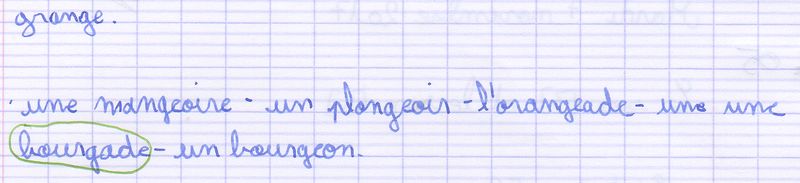 grange.
une mangeoire - un plongeoir - l'orangeade - une une
bourgade - un bourgeon.